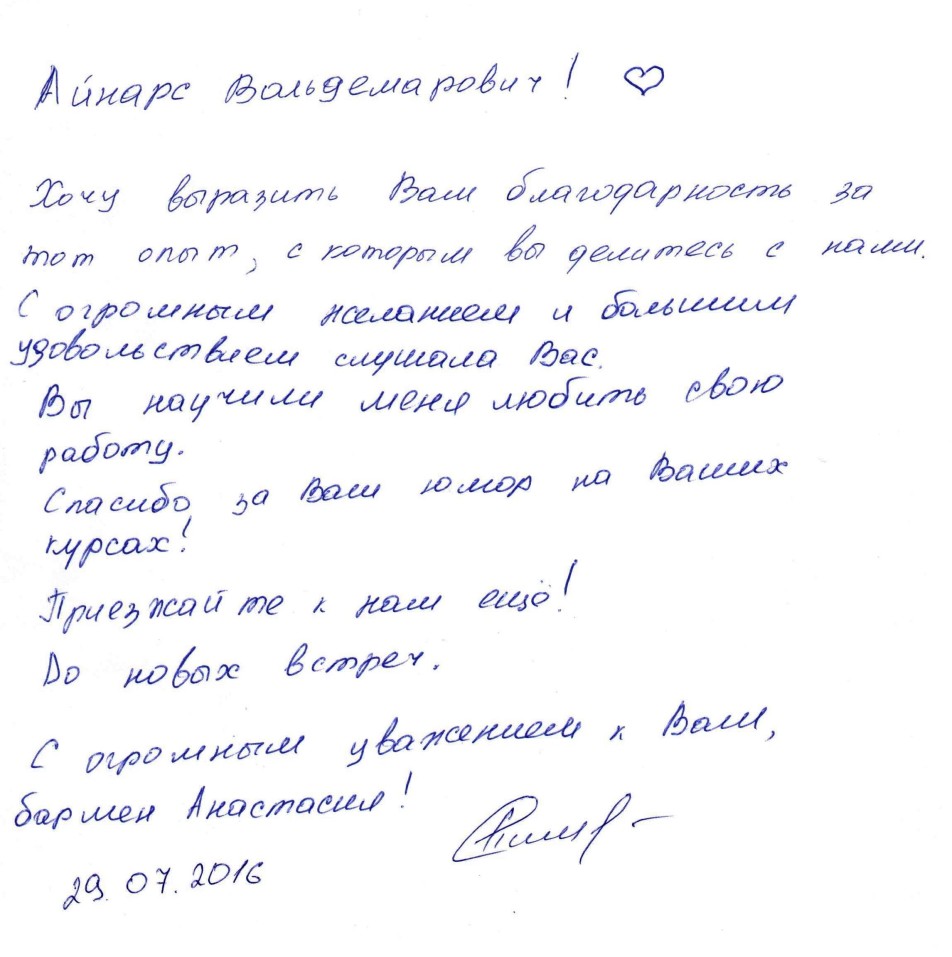 Айнарс Вольдемарович! ♡
Хочу выразить Вам благодарность за
тот опыт, с которым вы делитесь с нами.
С огромным желанием и большим
удовольствием слушала Вас.
Вы научили меня любить свою
работу.
Спасибо за Ваш юмор на Ваших
курсах!
Приезжайте к нам ещё!
До новых встреч.
С огромным уважением к Вам,
бармен Анастасия!
29.07.2016